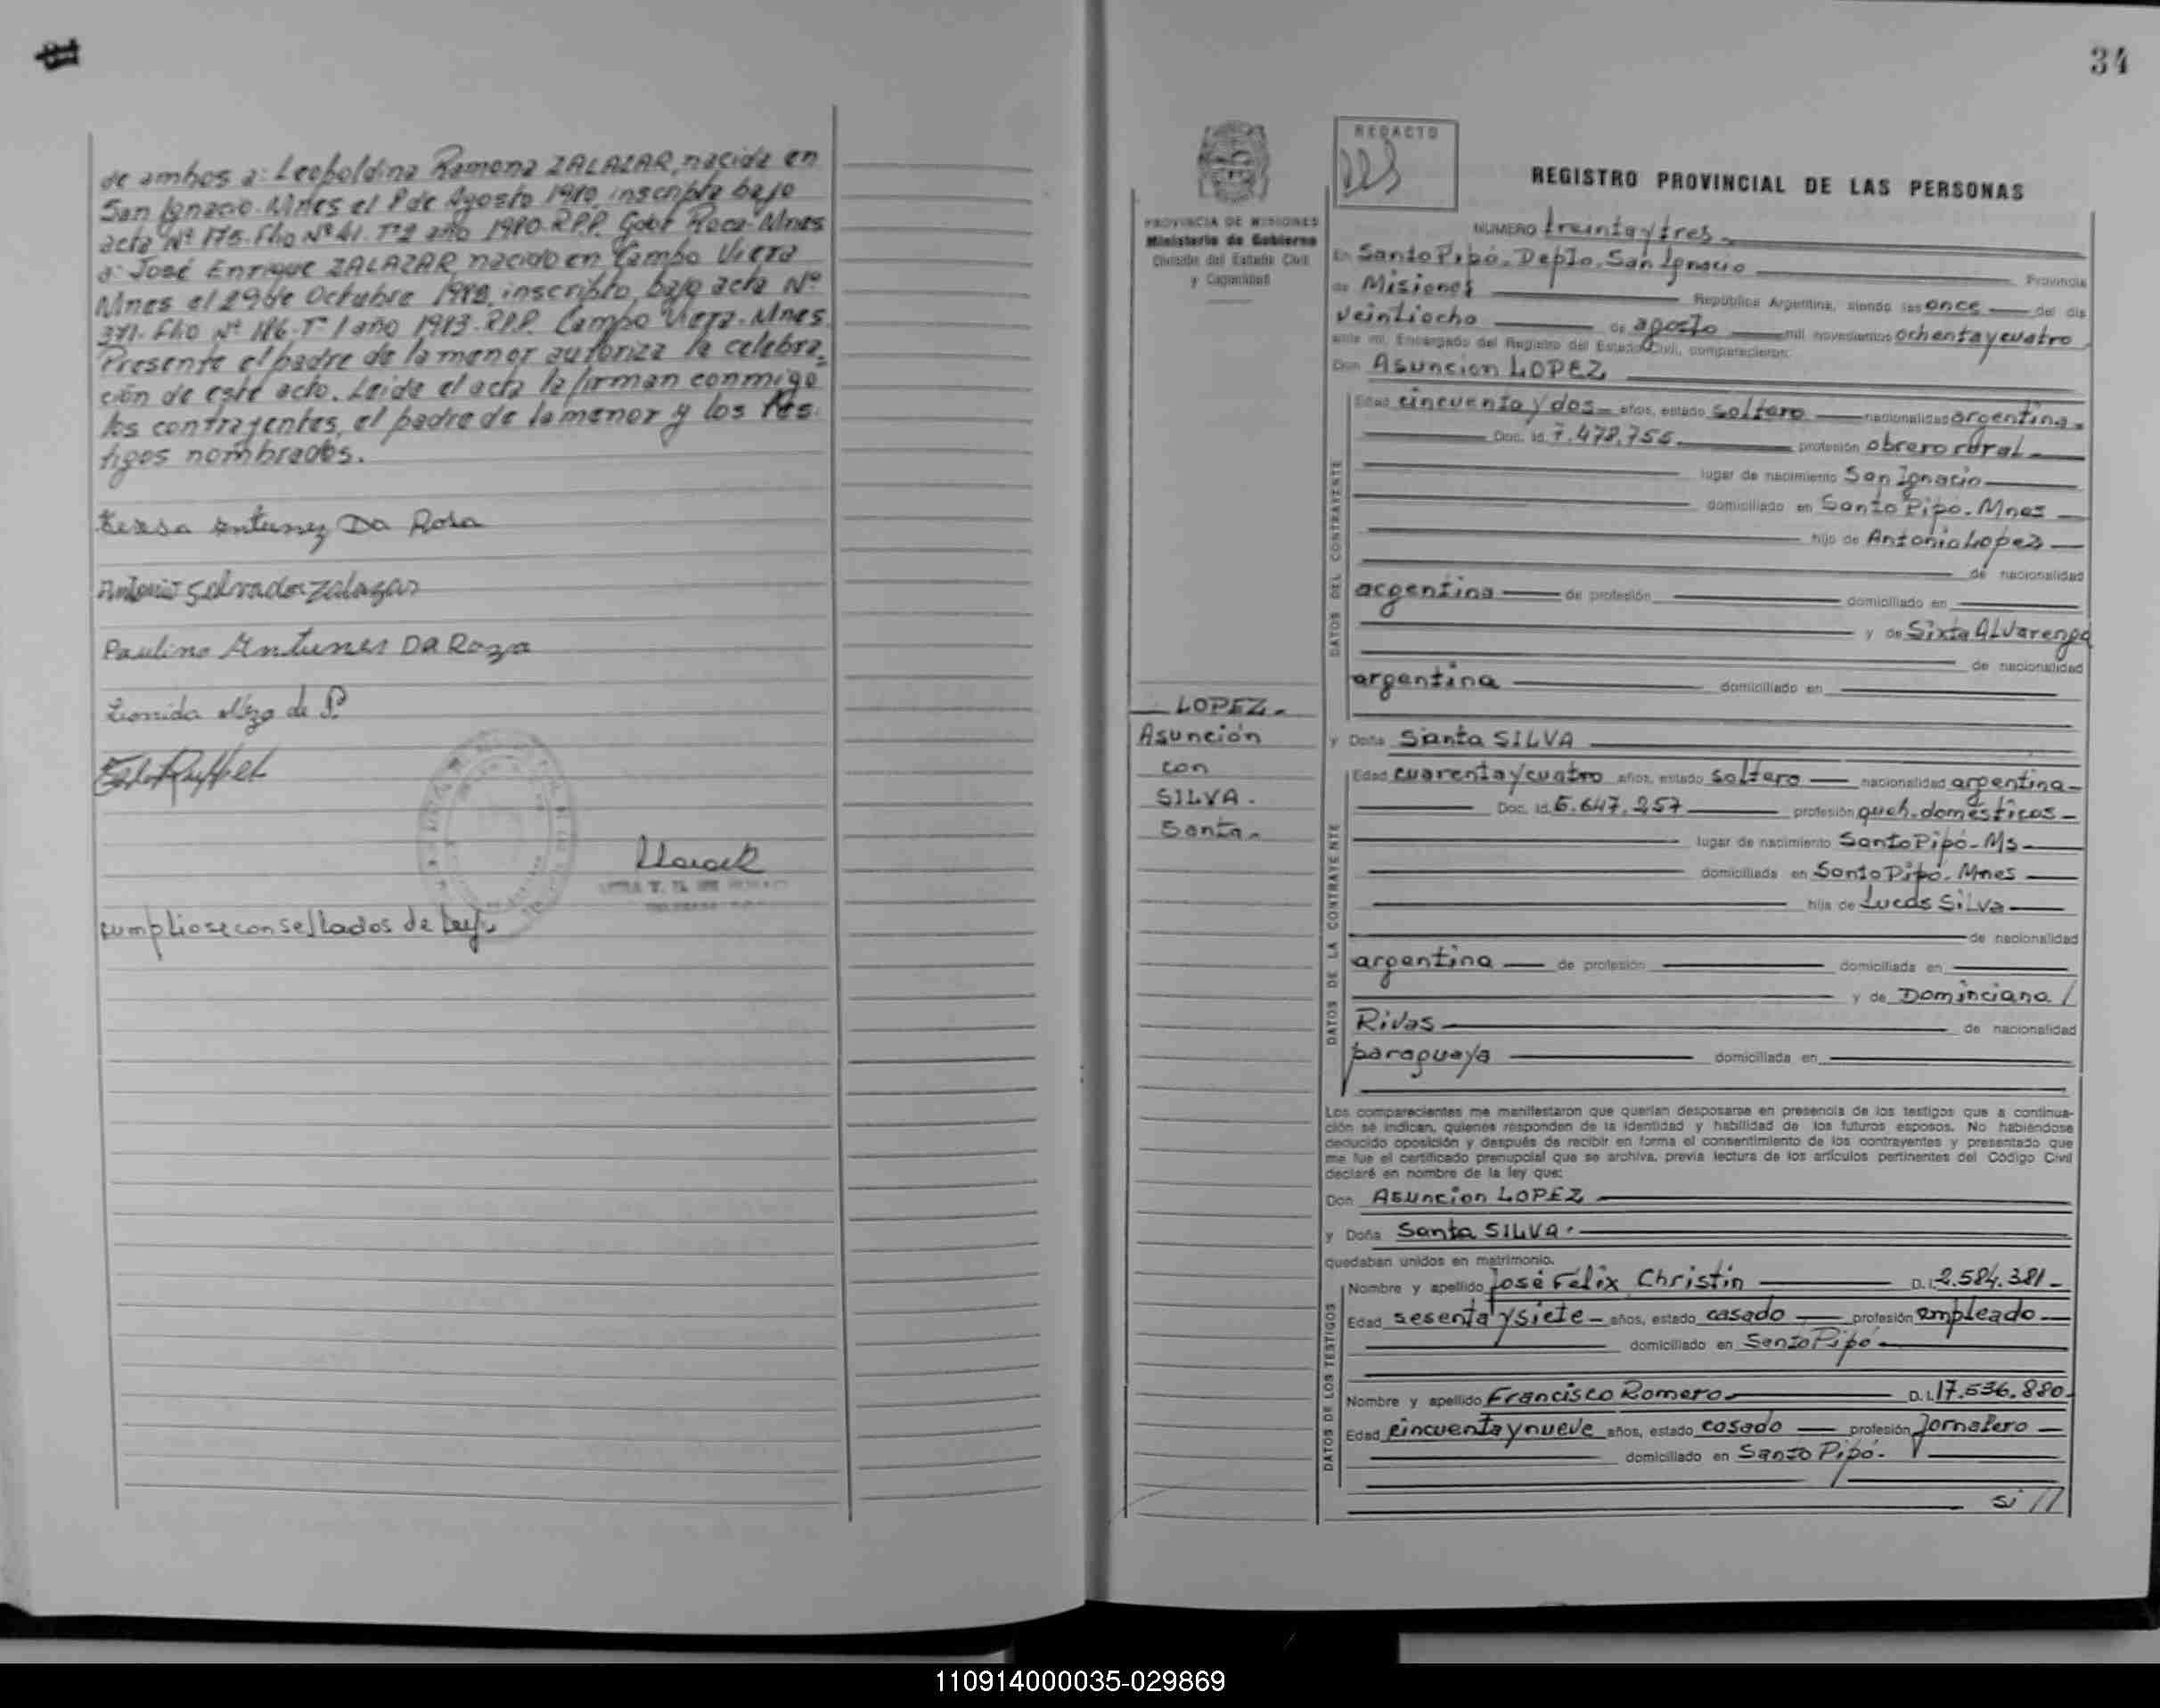 de ambos a: Leopoldina Ramona ZALAZAR, nacida en
San Ignacio-Mnes el 8 de Agosto 1980, inscripta bajo
acta Nº 175-Flio Nº 41-Tº2 año 1980-R.P.P. Gobr Roca-Mnes
a: José Enrique ZALAZAR, nacido en Campo Viera
Mnes el 29 de Octubre 1982, inscripto, bajo acta Nº
371-Flio Nº 186-Tº 1 año 1983-R.P.P. Campo Viera-Mnes.
Presente el padre de la menor autoriza la celebra_
ción de este acto. Leida el acta la firman conmigo
los contrayentes, el padre de la menor y los tes.
tigos nombrados.
Teresa Antunez Da Rosa
Antonio Salvador Zalazar
Paulino Antunes Da Roza
Leonida de P.
cumpliose con sellados de Ley.
34
REDACTO
REGISTRO PROVINCIAL DE LAS PERSONAS
PROVINCIA DE MISIONES
Ministerio de Gobierno
División del Estado Civil
y Capacidad
NUMERO treinta y tres
En Santo Pipó-Depto. San Ignacio Provincia
de Misiones República Argentina, siendo las once del día
veintiocho de agosto mil novecientos ochenta y cuatro
ante mí, Encargado del Registro del Estado Civil, comparecieron:
Don Asuncion LOPEZ
Edad cincuenta y dos años, estado soltero nacionalidad argentina
Doc. Id. 7.478.755 profesión obrero rural
lugar de nacimiento San Ignacio
domiciliado en Santo Pipó-Mnes
hijo de Antonio Lopez
de nacionalidad
argentina de profesión domiciliado en
y de Sixta ALVarenga
de nacionalidad
argentina domiciliado en
DATOS DEL CONTRAYENTE
LOPEZ
Asunción
con
SILVA.
Santa
y Doña Santa SILVA
Edad cuarenta y cuatro años, estado soltero nacionalidad argentina
Doc. Id. 6.647.257 profesión queh. domésticos
lugar de nacimiento Santo Pipó-Ms
domiciliada en Santo Pipó-Mnes
hija de Lucas SiLva
de nacionalidad
argentina de profesión domiciliada en
y de Dominciana /
Rivas de nacionalidad
paraguaya domiciliada en
DATOS DE LA CONTRAYENTE
Los comparecientes me manifestaron que querían desposarse en presencia de los testigos que a continua-
ción se indican, quienes responden de la identidad y habilidad de los futuros esposos. No habiéndose
deducido oposición y después de recibir en forma el consentimiento de los contrayentes y presentado que
me fue el certificado prenupcial que se archiva, previa lectura de los artículos pertinentes del Código Civil
declaré en nombre de la ley que:
Don Asuncion LOPEZ
y Doña Santa SILVA.
quedaban unidos en matrimonio.
Nombre y apellido José Félix Christin D.I. 2.584.381
Edad sesenta y siete años, estado casado profesión empleado
domiciliado en Santo Pipó
Nombre y apellido Francisco Romero D.I. 17.536.880
Edad cincuenta y nueve años, estado casado profesión Jornalero
domiciliado en Santo Pipó.
si //
DATOS DE LOS TESTIGOS
110914000035-029869